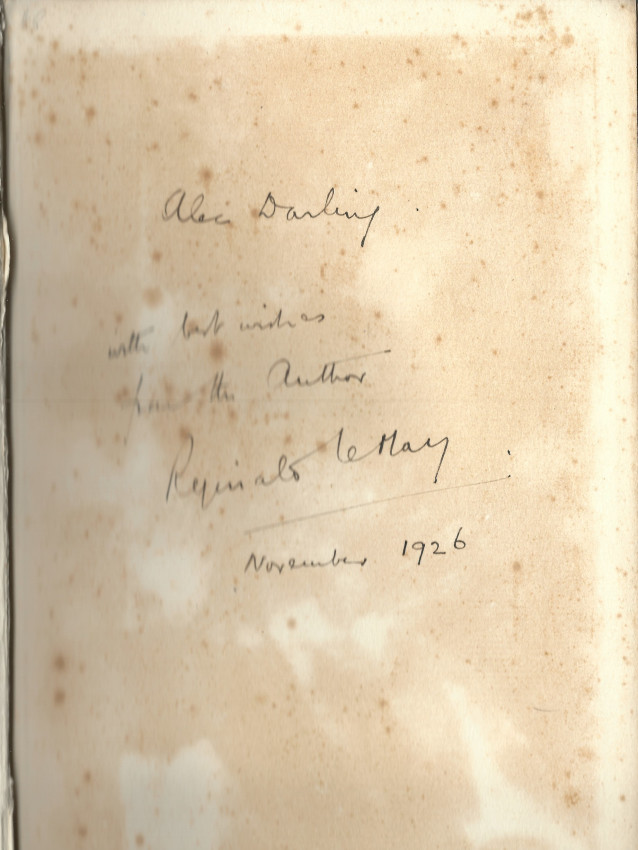 Alec Darling.
with best wishes
from the Author
Reginald le May.
November 1926